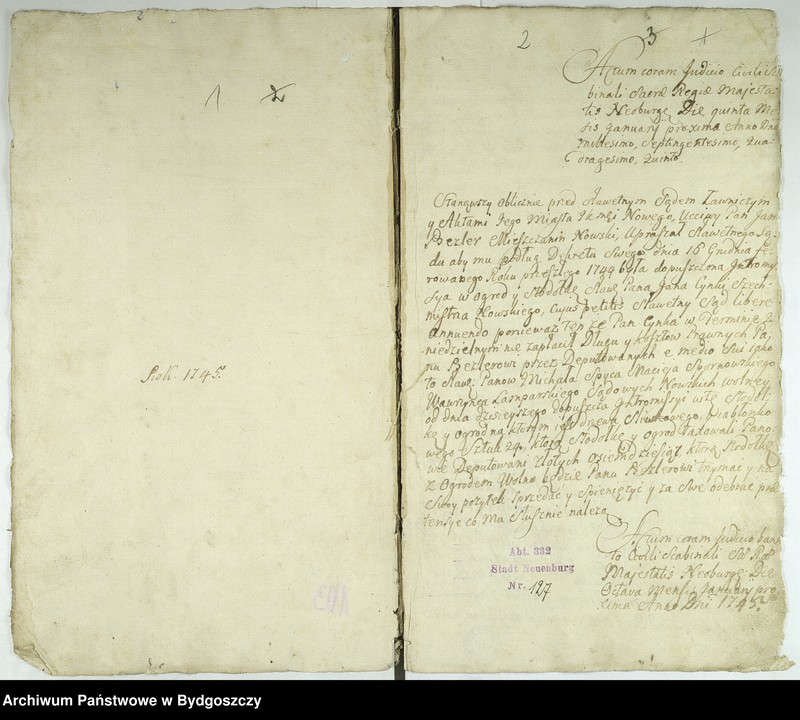 2
1 2
Rok. 1745.
2 3
Actum coram Judicio Civili Sca
binali Sacræ Regiæ Majesta
tis Neoburgę Die quinta Me
sis January proxima Anno Dni
millesimo, Septingentesimo, Qua
dragesimo, Quinto.
Stanąwszy oblicznie przed Sławetnym Sądem Ławniczym
y Aktami Jego Miasta Nowego, Ucciwy Pan Jan
Bezler Mieszczanin Nowski, Upraszał Sławetnego Są
du aby mu podług Dekretu Swego dnia 16 Grudnia fe
rowanego Roku przeszłego 1744 była dopuszczona Intromi
sya w ogrod y Stodołkę Sław Pana Jana Cynki Szech
mistrza Nowskiego, Cujus petitis Sławetny Sąd libere
annuendo ponieważ ten że Pan Cynka w Terminie
niedzielnym nie zapłacił Długu y kosztow Prawnych Pa
nu Bezlerowi przez Deputowanych e medio Sui jako
to Sław: Panow Michała Spyca Macieja
Wawrzynca Lamparskiego Sądowych Nowskich wolney
od dnia dzisieyszego dopuszcza Intromissyi wte Stodoł
kę y ogrod na ktorym iest drzewa Sliwkowego, Jabłonko
wego Sztuk 24, ktorą Stodołkę y ogrod taxowali Pano
wie Deputowani złotych osiemdziesiąt ktorą Stodołkę
z Ogrodem Wolno będzie Panu Bezlerowi trzymac y na
Swoy pożytek Sprzedac y Spieniężyć y za Swe odebrac pre
tensye co mu słusznie należą
Actum coram Judicio bann
to Civili Scabinali
Majestatis Neoburgę Die
Octava Mensis January pro
xima Anno Dni 1745.
Abt. 332
Stadt Neuenburg
Nr. 127
Archiwum Państwowe w Bydgoszczy